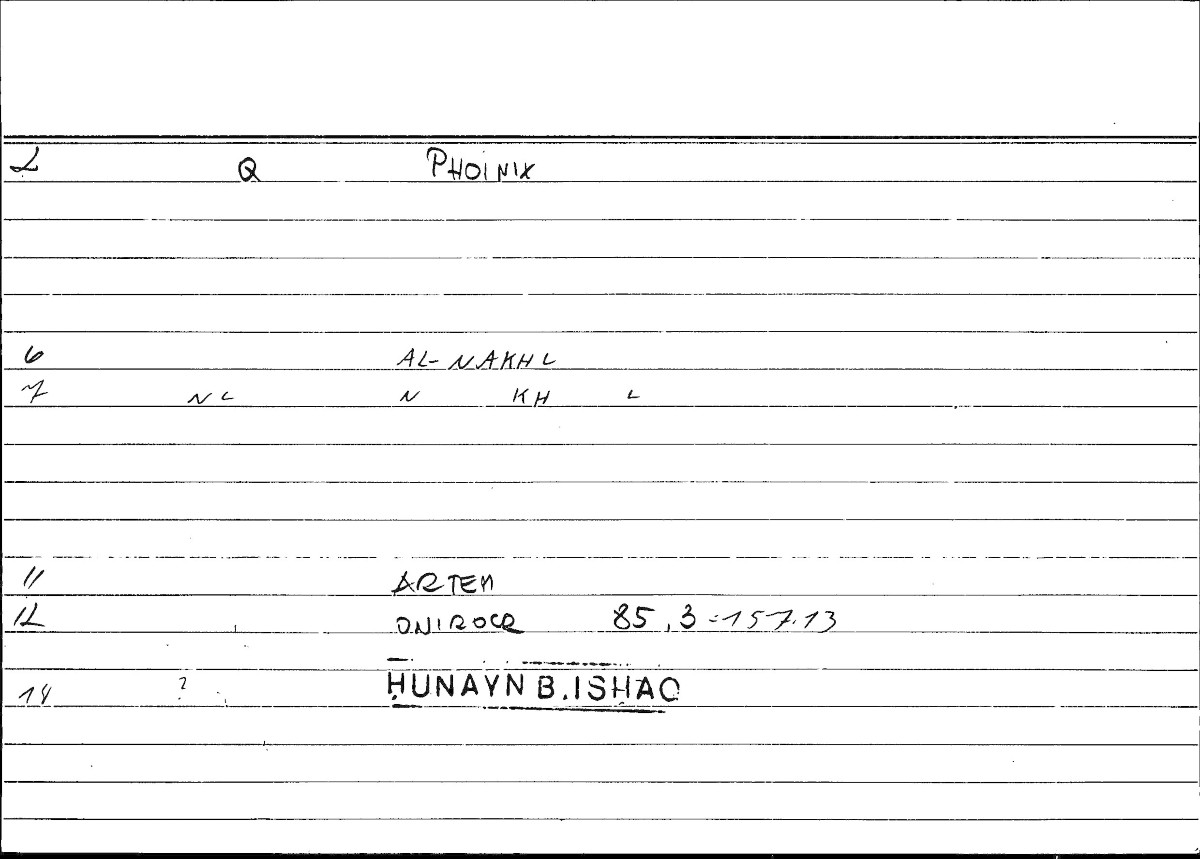 2 Q PHOINIX
6 AL-NAKHL
7 NL N KH L
11 ARTEM
12 ONIROCR 85,3=157.13
14 ? ḤUNAYN B.ISḤAQ